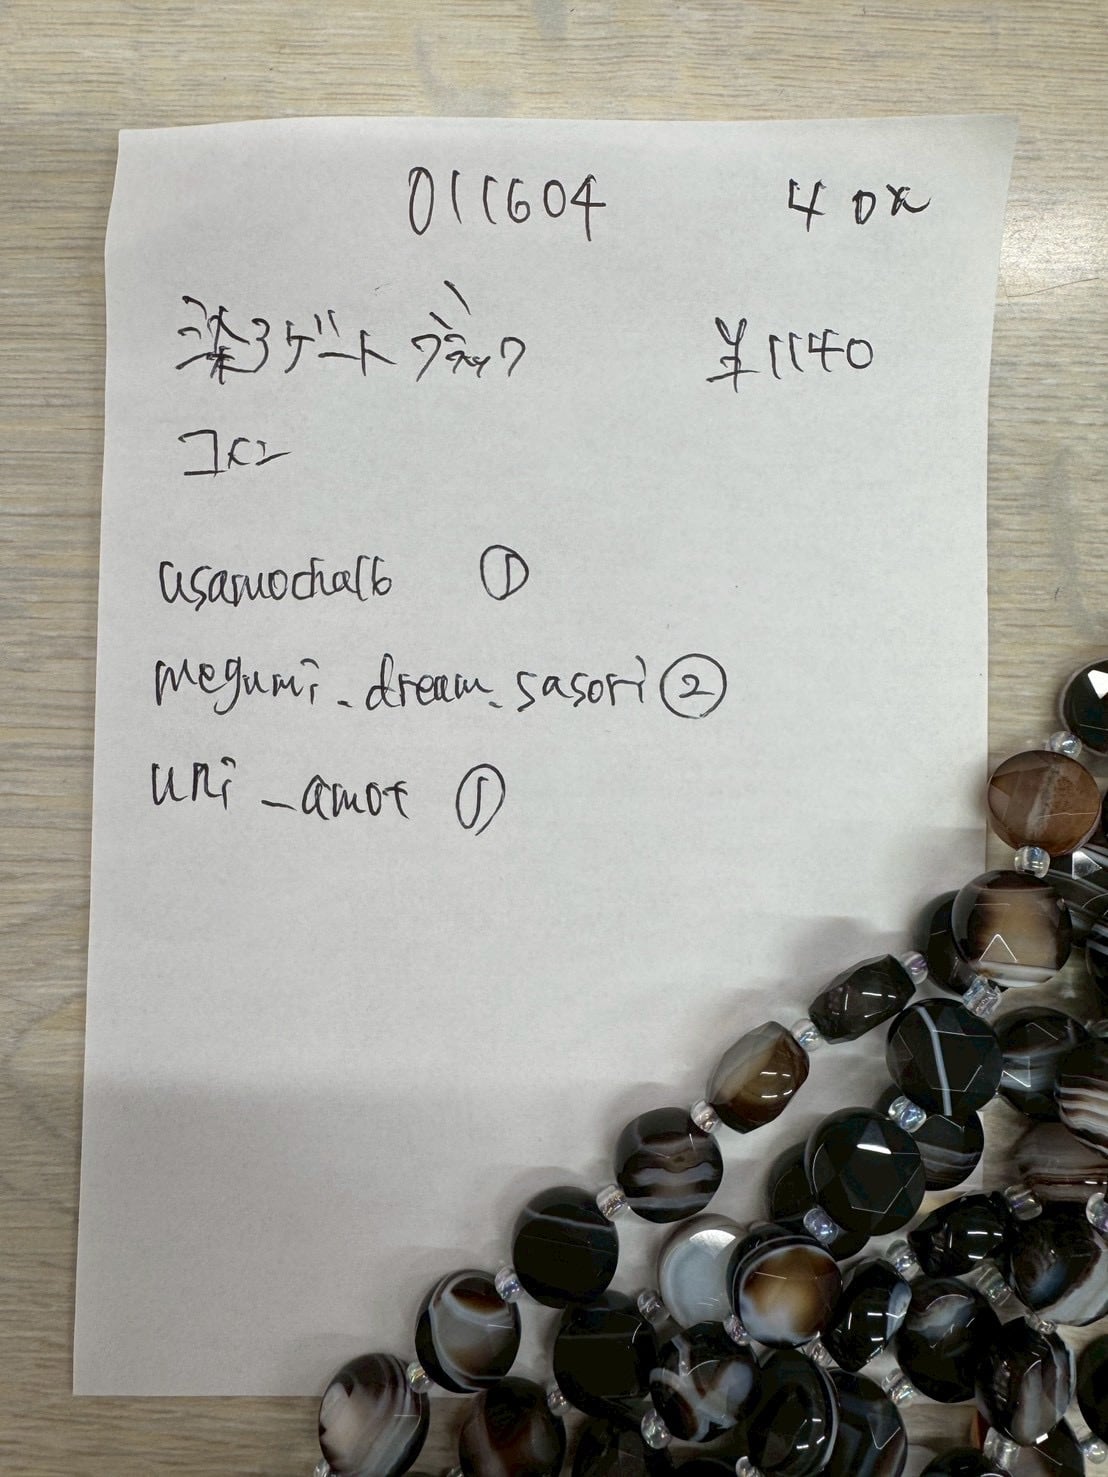 011604 40x
染アゲート ブラック ¥1140
コイン
usamocha16 ①
megumi_dream_sasori ②
uni_amor ①